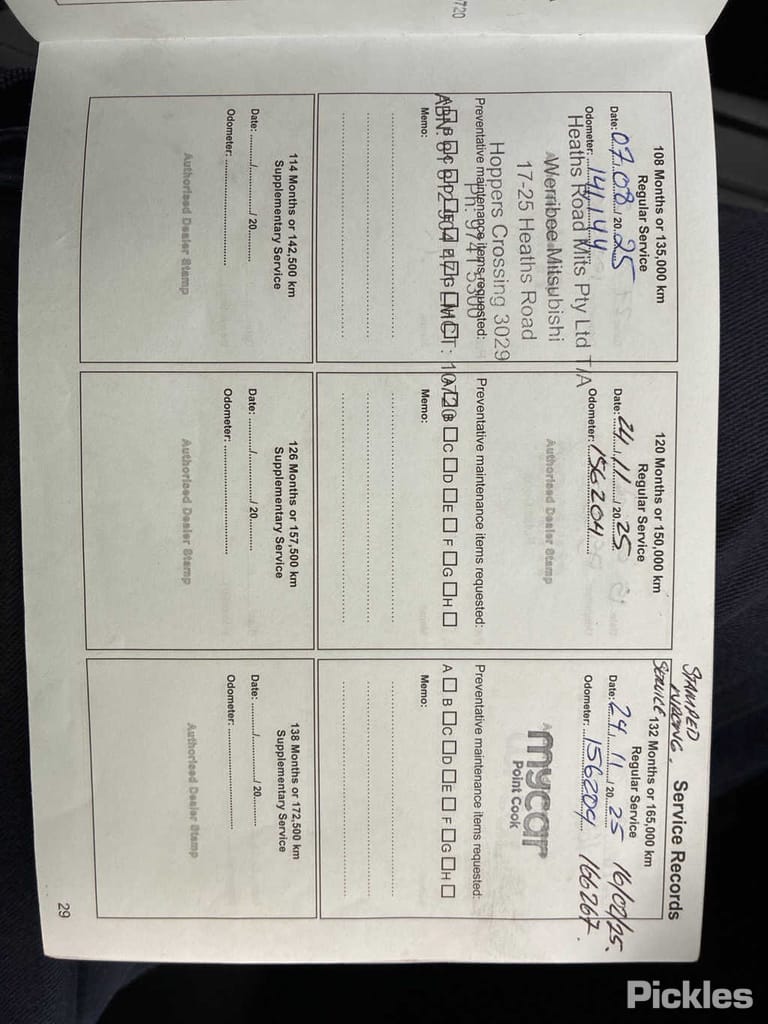 720
Service Records
STAMPED
WRONG.
SERVICE
108 Months or 135,000 km
Regular Service
Date: 07.08.20.25
Odometer: 141,144
Heaths Road Mits Pty Ltd T/A
Werribee Mitsubishi
17-25 Heaths Road
Hoppers Crossing 3029
Ph: 9741 5300
Preventative maintenance items requested:
Memo:
114 Months or 142,500 km
Supplementary Service
Date: ......../......../ 20.........
Odometer:
Authorised Dealer Stamp
120 Months or 150,000 km
Regular Service
Date: 24/11/20 25
Odometer: 156204
Authorised Dealer Stamp
Preventative maintenance items requested:
C D E F G H
Memo:
126 Months or 157,500 km
Supplementary Service
Date: ......../......../ 20.........
Odometer:
Authorised Dealer Stamp
132 Months or 165,000 km
Regular Service
Date: 24/11/20 25 16/02/25.
Odometer: 156204 166267.
mycar
Point Cook
Preventative maintenance items requested:
A B C D E F G H
Memo:
138 Months or 172,500 km
Supplementary Service
Date: ......../......../ 20.........
Odometer:
Authorised Dealer Stamp
29
Pickles